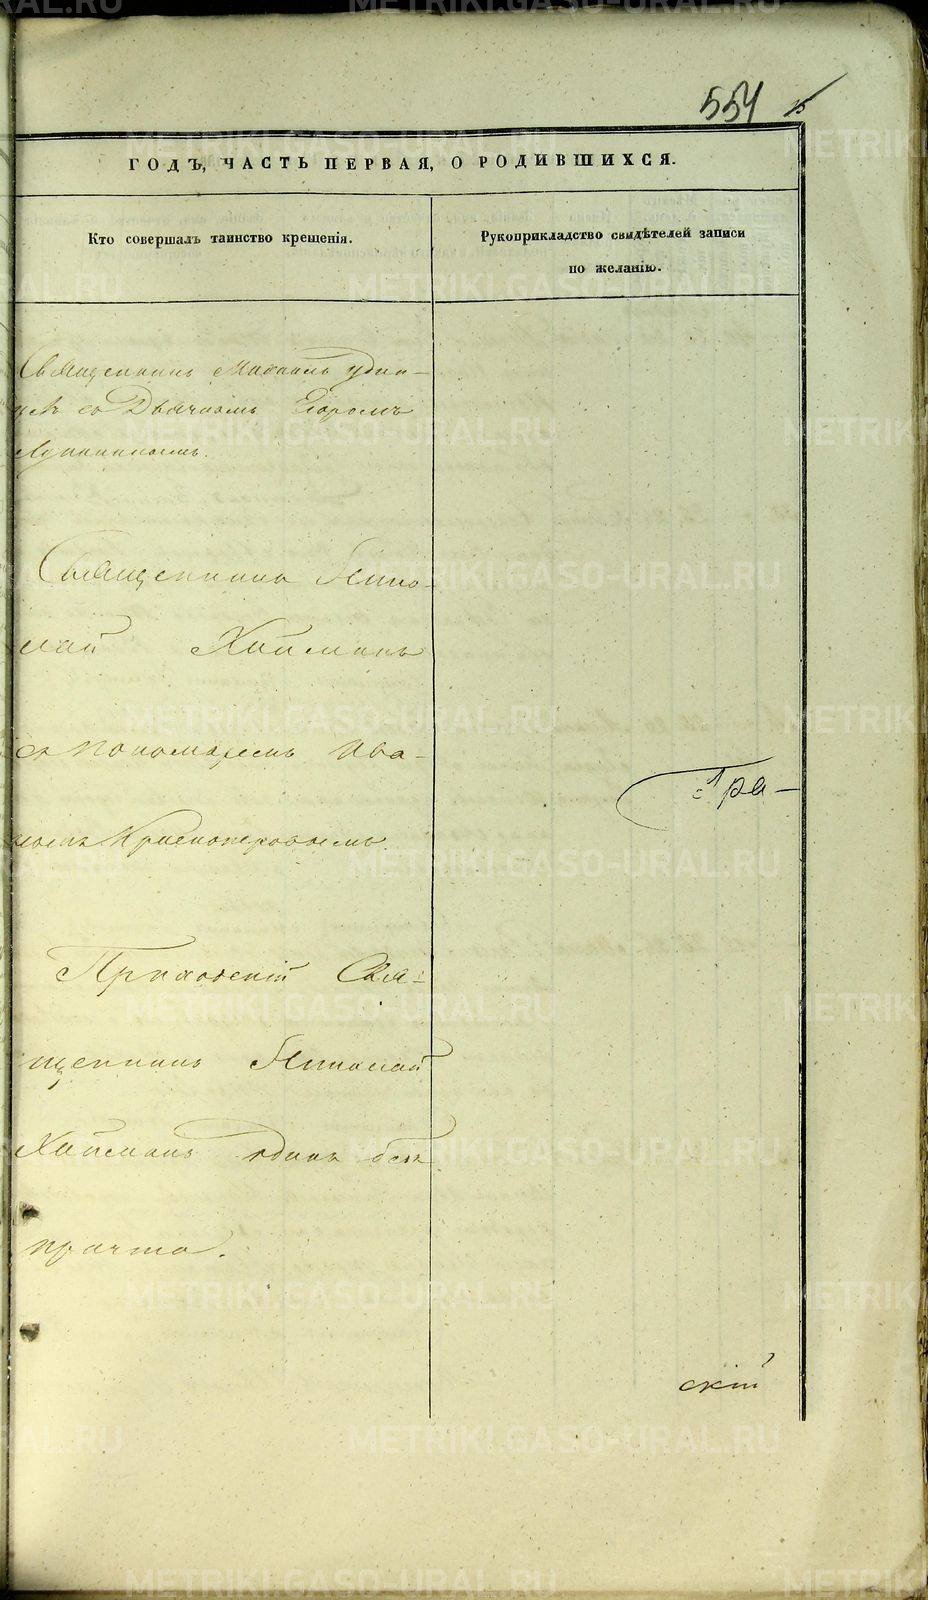 554
15
ГОДЪ, ЧАСТЬ ПЕРВАЯ, О РОДИВШИХСЯ.
Кто совершалъ таинство крещенія.
Рукоприкладство свидѣтелей записи
по желанію.
Священникъ Михаилъ Удин-
цевъ со Дьячкомъ Егоромъ
Священникъ Нико-
лай Хайманъ
съ пономаремъ Ива-
номъ Красноперовымъ
Гра-
Приходскій Свя-
щенникъ Николай
Хайманъ одинъ безъ
причта.
скій
METRIKI.GASO-URAL.RU